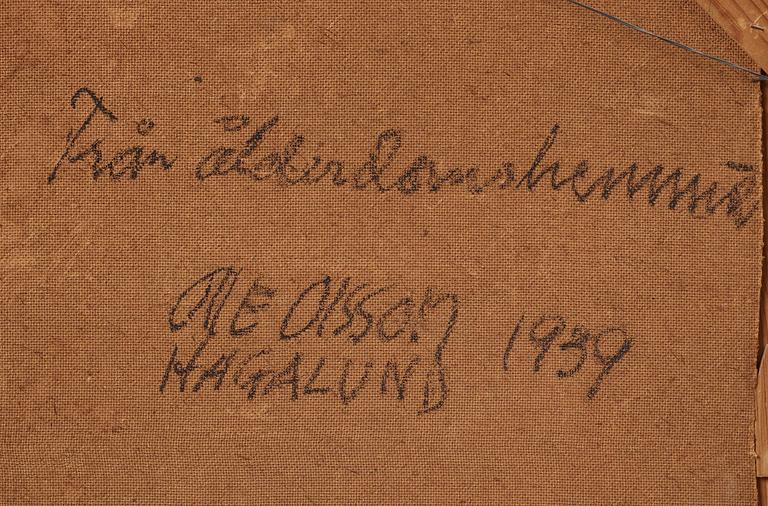 Från ålderdomshemmet
OLLE OLSSON
HAGALUND 1939